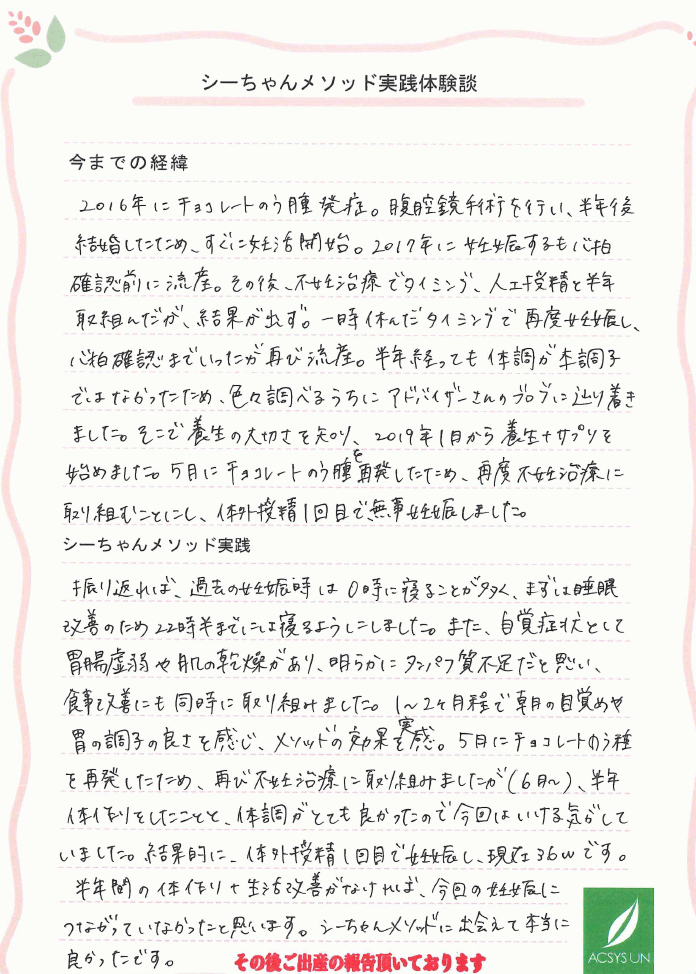 シーちゃんメソッド実践体験談
今までの経緯
2016年にチョコレートのう腫発症。腹腔鏡手術を行い、半年後
結婚したため、すぐに妊活開始。2017年に妊娠するも心拍
確認前に流産。その後、不妊治療でタイミング、人工授精と半年
取組んだが、結果が出ず。一時休んだタイミングで再度妊娠し、
心拍確認までいったが再び流産。半年経っても体調が本調子
ではなかったため、色々調べるうちにアドバイザーさんのブログに辿り着き
ました。そこで養生の大切さを知り、2019年1月から養生+サプリを
始めました。5月にチョコレートのう腫を再発したため、再度不妊治療に
取り組むことにし、体外授精1回目で無事妊娠しました。
シーちゃんメソッド実践
振り返れば、過去の妊娠時は0時に寝ることが多く、まずは睡眠
改善のため22時半までには寝るようにしました。また、自覚症状として
胃腸虚弱や肌の乾燥があり、明らかにタンパク質不足だと思い、
食事改善にも同時に取り組みました。1〜2ヶ月程で朝の目覚めや
胃の調子の良さを感じ、メソッドの効果を実感。5月にチョコレートのう種
を再発したため、再び不妊治療に取り組みましたが(6月〜)、半年
体作りをしたことと、体調がとても良かったので今回はいける気がして
いました。結果的に、体外授精1回目で妊娠し、現在36wです。
半年間の体作り+生活改善がなければ、今回の妊娠に
つながっていなかったと思います。シーちゃんメソッドに出会えて本当に
良かったです。
その後ご出産の報告頂いております
ACSYS UN